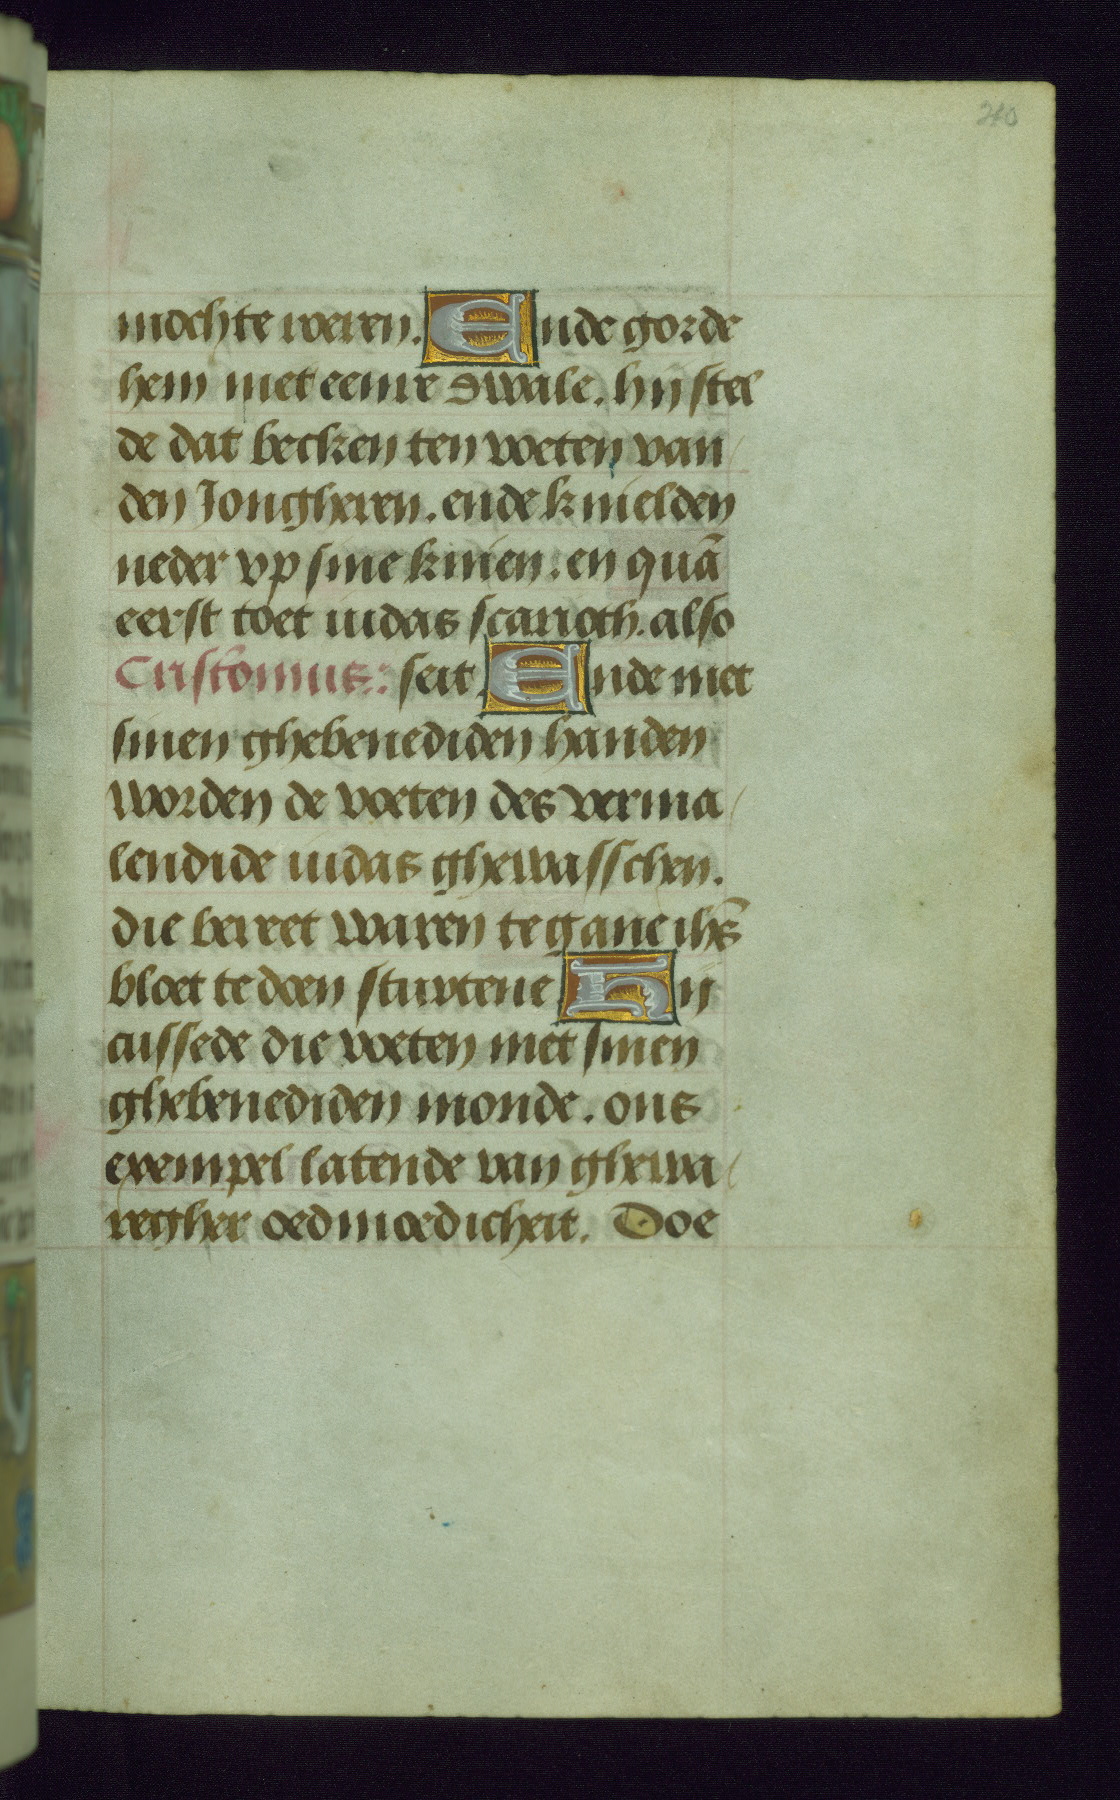 210
mochte weren. Ende gorde
hem met eenre dwale. hij stel
de dat becken ten voeten van
den Jongheren. ende knielden
neder vp sine knien. en quā
eerst toet iudas scarioth. also
Cristo͂mus: seit. Ende met
sinen ghebenediden handen
worden de voeten des verma
lendide iudas ghewasschen.
die bereet waren te gane ihs̄
bloet te doen sturtene Hij
cussede die voeten met sinen
ghebenediden monde. ons
exempel latende van ghewa
regher oedmoedicheit. Doe